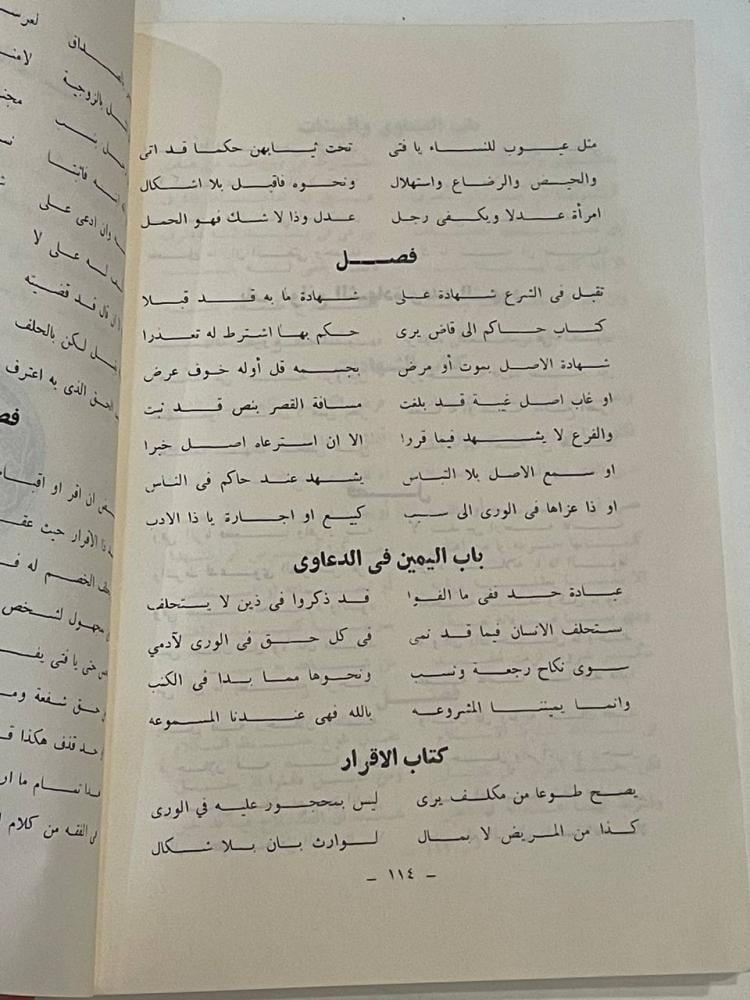 مثل عيوب للنساء يا فتى تحت ثيابهن حكما قد اتى
والحيض والرضاع واستهلال ونحوه فاقبل بلا اشكال
امرأة عدلا ويكفى رجل عدل وذا لا شك فهو الحمل
فصل
تقبل فى الشرع شهادة على شهادة ما به قد قبلا
كتاب حاكم الى قاض يرى حكم بها اشترط له تعذرا
شهادة الاصل بموت أو مرض بجسمه قل أوله خوف عرض
او غاب اصل غيبة قد بلغت مسافة القصر بنص قد ثبت
والفرع لا يشهد فيما قررا الا ان استرعاه اصل خبرا
او سمع الاصل بلا التباس يشهد عند حاكم فى الناس
او ذا عزاها فى الورى الى سبب كبيع او اجارة يا ذا الادب
باب اليمين فى الدعاوى
عبادة حد ففى ما الفوا قد ذكروا فى ذين لا يستحلف
ستحلف الانسان فيما قد نمى فى كل حق فى الورى لآدمي
سوى نكاح رجعة ونسب ونحوها مما بدا فى الكتب
وانما يميننا المشروعه بالله فهى عندنا المسموعه
كتاب الاقرار
يصح طوعا من مكلف يرى ليس بمحجور عليه في الورى
كذا من المريض لا بمال لوارث بان بلا شكال
– ١١٤ –
بالزوجية
وان ادعى على
له على لا
قال قد قضيته
لكن بالحلف
الحق الذى به اعترف
ان اقر او
ذا الاقرار حيث
الخصم له
مجهول لشخص
يا فتى
حق شفعة
قذف هكذا
تمام ما
الفقه من كلام